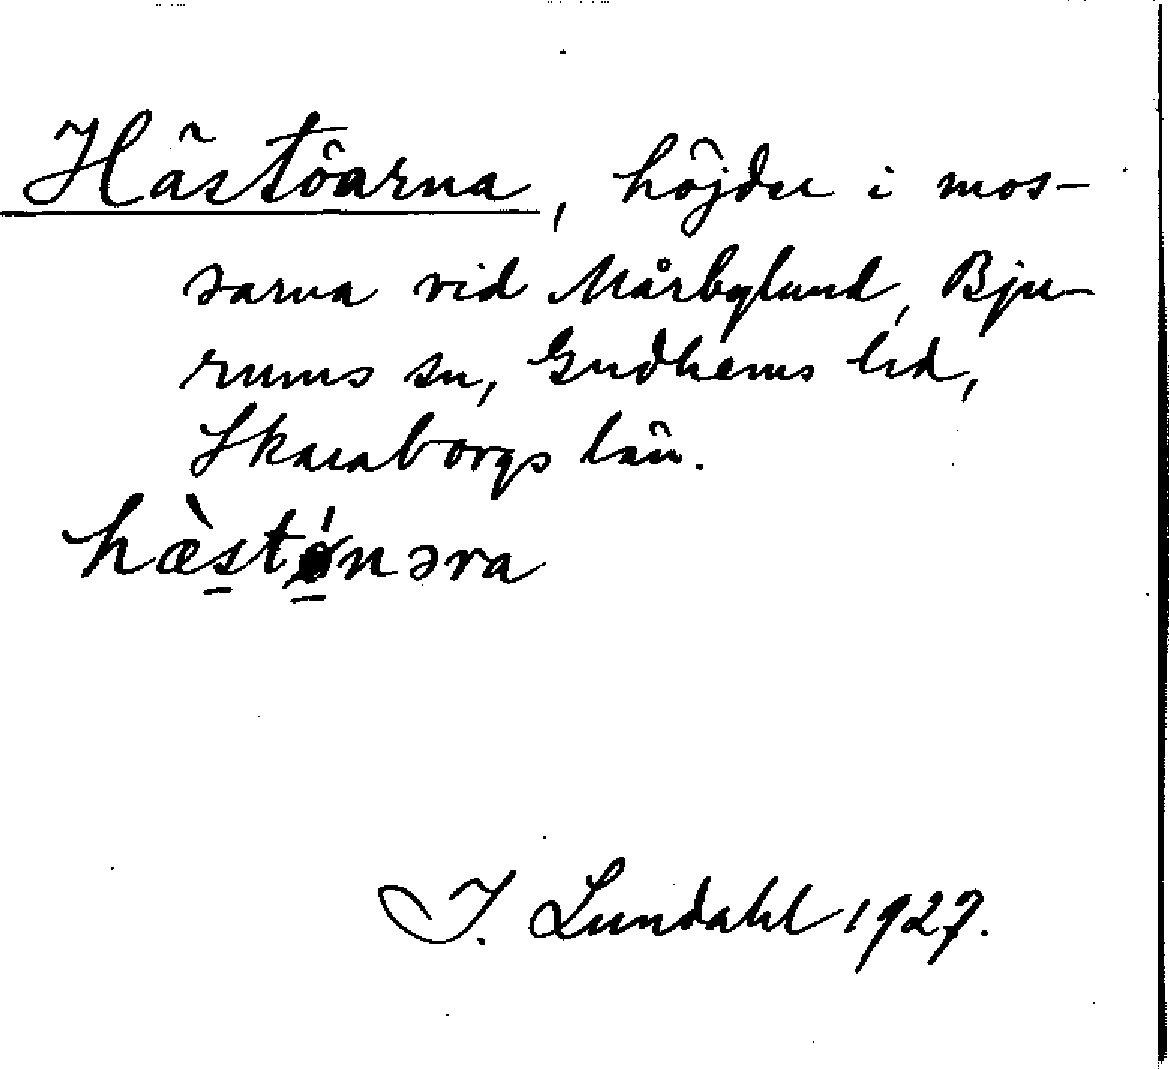 Hästöarna, höjder i mos-
sarna vid Mårbylund, Bju-
rums sn, Gudhems hd,
Skaraborgs län.
hæ̀stǿnəra
I. Lundahl 1927.